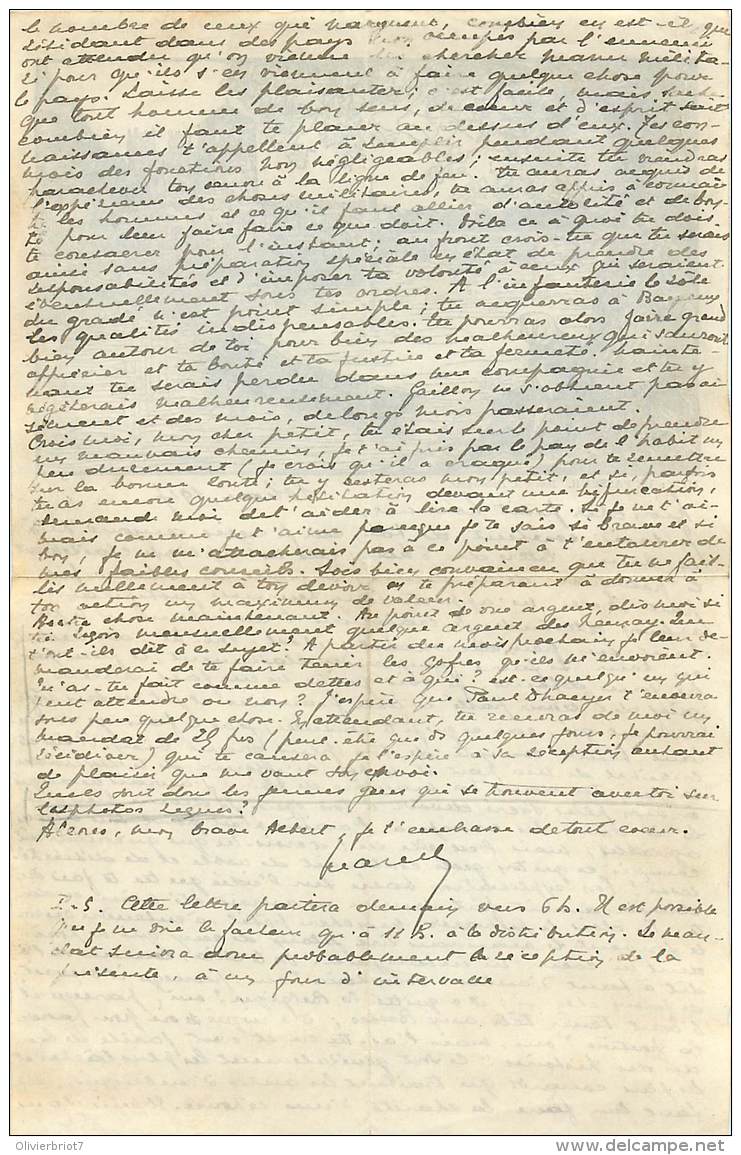 le nombre de ceux qui narguent, combien en est-il qui
résidant dans des pays non occupés par l'ennemi
ont attendu qu'on vienne les chercher manu milita-
ri pour qu'ils s'en viennent à faire quelque chose pour
le pays. Laisse les plaisanter; c'est facile, mais sache
que tout homme de bon sens, de cœur et d'esprit sait
combien il faut te placer au dessus d'eux. Tes con-
naissances t'appellent à remplir pendant quelques
mois des fonctions non négligeables; ensuite tu viendras
parachever ton œuvre à la ligne de feu. tu auras acquis de
l'expérience des choses militaires, tu auras appris à connaî-
tre les hommes et ce qu'il faut allier d'autorité et de bon-
té pour leur faire faire ce que doit. Voilà ce à quoi tu dois
te consacrer pour l'instant; au front crois-tu que tu serais
ainsi sans préparation spéciale en état de prendre des
responsabilités et d'imposer ta volonté à ceux qui seraient
éventuellement sous tes ordres. A l'infanterie le rôle
du gradé n'est point simple; tu acquerras à Bayeux
les qualités indispensables. tu pourras alors faire grand
bien autour de toi pour bien des malheureux qui sauront
apprécier et ta bonté et ta justice et ta fermeté. Mainte
nant tu serais perdu dans une compagnie et tu y
végéterais malheureusement. Gaillon ne s'obtient pas ai
sément et des mois, de longs mois passeraient.
Crois moi, mon cher petit, tu étais sur le point de prendre
un mauvais chemin, je t'ai pris par le pan de l'habit un
peu durement (je crois qu'il a craqué) pour te remettre
sur la bonne route; tu y resteras mon petit, et si, parfois
tu as encore quelque hésitation devant une bifurcation,
demande moi de t'aider à lire la carte. Si je ne t'ai-
mais comme je t'aime parceque je te sais si brave et si
bon, je ne m'attacherais pas à ce point à t'entourer de
mes faibles conseils. Sois bien convaincu que tu ne fail-
lis nullement à ton devoir en te préparant à donner à
ton action un maximum de valeur.
Autre chose maintenant. Au point de vue argent, dis moi si
tu reçois mensuellement quelque argent des
t'ont-ils dit à ce sujet? A partir du mois prochain je leur de-
manderai de te faire tenir les qu'ils m'envoient.
M'as-tu fait comme dettes et à qui? est-ce quelqu'un qui
peut attendre ou non? J'espère que Paul Dhaeyer t'enverra
sous peu quelque chose. En attendant, tu recevras de moi un
mandat de frs (peut-être que ds quelques jours, je pourrai
récidiver) qui te causera je l'espère à sa réception autant
de plaisir que me vaut son envoi.
Quels sont donc les jeunes gens qui se trouvent avec toi sur
les photos reçues?
Alors, mon brave Albert, je t'embrasse de tout cœur.
Marcel
P.S. Cette lettre partira demain vers 6 h. Il est possible
que je ne voie le facteur qu'à 11 h. à la distribution. Le man-
dat suivra donc probablement la réception de la
présente, à un jour d'intervalle
Olivierbriot7
www.delcampe.net